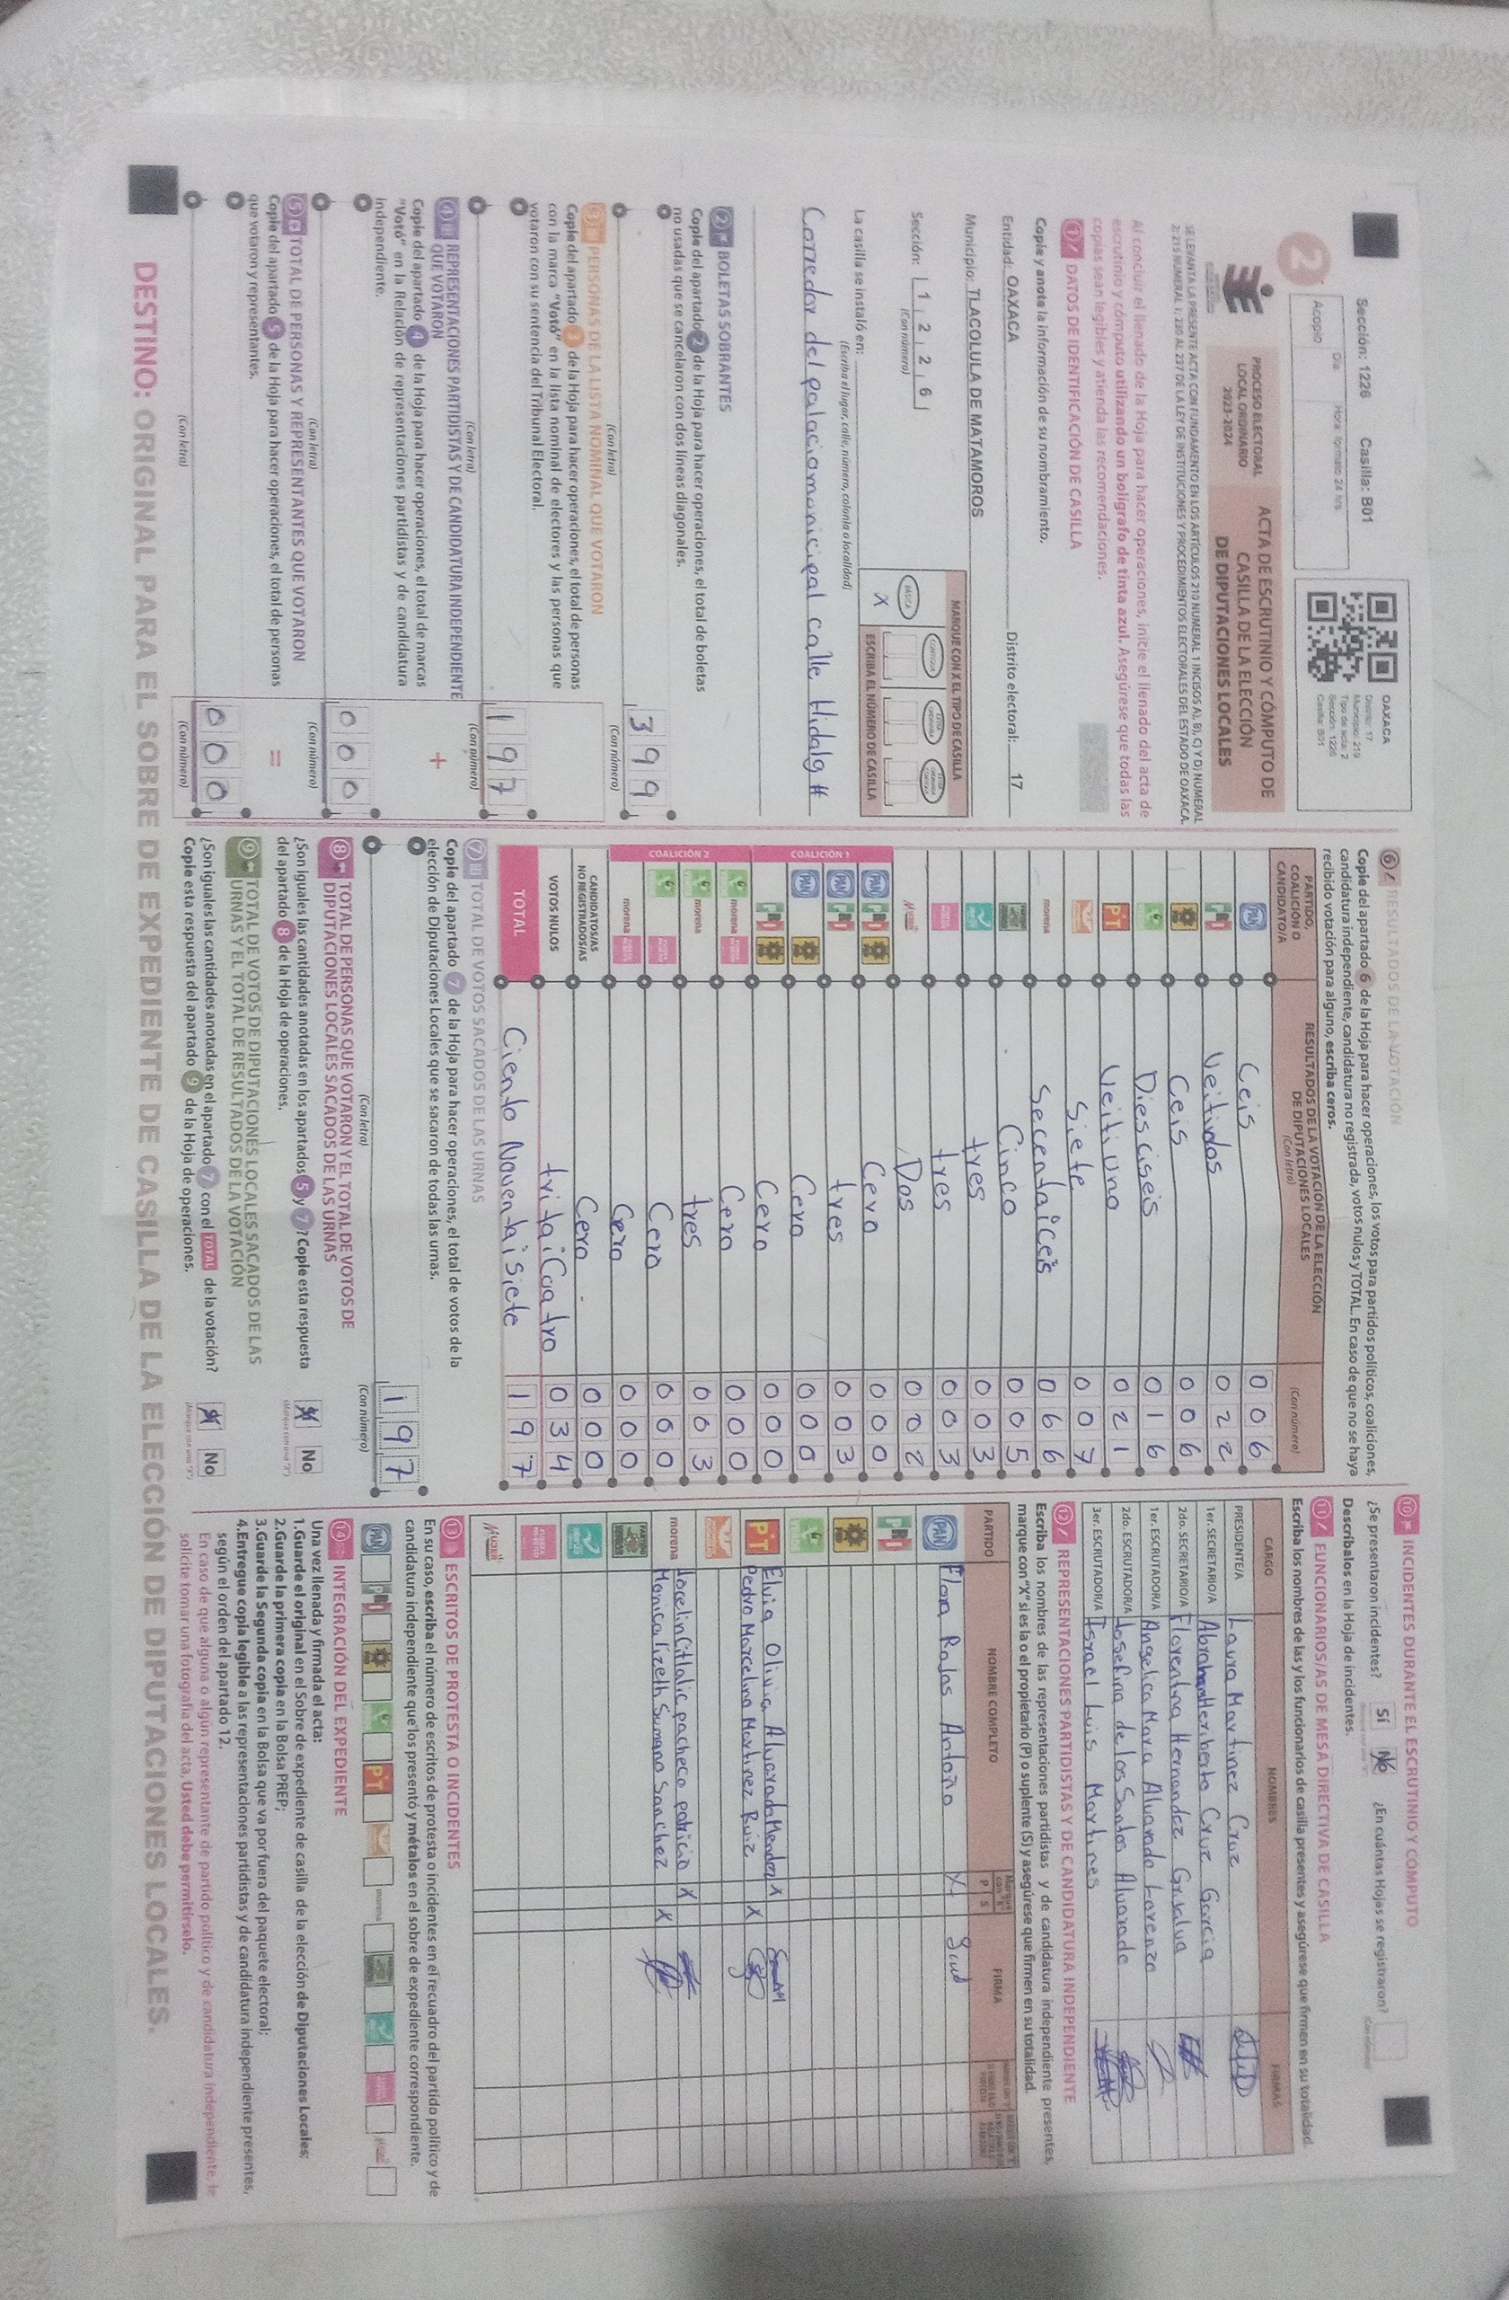 Sección: 1226 Casilla: B01
Día Hora formato 24 hrs
Acopio
OAXACA
Distrito: 17
Municipio: 219
Tipo de acta: 2
Sección: 1226
Casilla: B01
2
PROCESO ELECTORAL
LOCAL ORDINARIO
2023-2024
ACTA DE ESCRUTINIO Y CÓMPUTO DE
CASILLA DE LA ELECCIÓN
DE DIPUTACIONES LOCALES
SE LEVANTA LA PRESENTE ACTA CON FUNDAMENTO EN LOS ARTÍCULOS 210 NUMERAL 1 INCISOS A), B), C) Y D) NUMERAL
2; 215 NUMERAL 1; 230 AL 237 DE LA LEY DE INSTITUCIONES Y PROCEDIMIENTOS ELECTORALES DEL ESTADO DE OAXACA.
Al concluir el llenado de la Hoja para hacer operaciones, inicie el llenado del acta de
escrutinio y cómputo utilizando un bolígrafo de tinta azul. Asegúrese que todas las
copias sean legibles y atienda las recomendaciones.
1 DATOS DE IDENTIFICACIÓN DE CASILLA
Copie y anote la información de su nombramiento.
Entidad: OAXACA Distrito electoral: 17
Municipio: TLACOLULA DE MATAMOROS
Sección: 1 2 2 6
(Con número)
MARQUE CON X EL TIPO DE CASILLA
BÁSICA
X
ESCRIBA EL NÚMERO DE CASILLA
La casilla se instaló en:
(Escriba el lugar, calle, número, colonia o localidad)
Corredor del palacio monicipal calle Hidalg #
2 BOLETAS SOBRANTES
Copie del apartado 2 de la Hoja para hacer operaciones, el total de boletas
no usadas que se cancelaron con dos líneas diagonales.
399
(Con letra) (Con número)
3 PERSONAS DE LA LISTA NOMINAL QUE VOTARON
Copie del apartado 3 de la Hoja para hacer operaciones, el total de personas
con la marca "Votó" en la lista nominal de electores y las personas que
votaron con su sentencia del Tribunal Electoral.
197
(Con letra) (Con número)
4 REPRESENTACIONES PARTIDISTAS Y DE CANDIDATURA INDEPENDIENTE
QUE VOTARON
+
Copie del apartado 4 de la Hoja para hacer operaciones, el total de marcas
"Votó" en la Relación de representaciones partidistas y de candidatura
independiente.
000
(Con letra) (Con número)
5 TOTAL DE PERSONAS Y REPRESENTANTES QUE VOTARON
=
Copie del apartado 5 de la Hoja para hacer operaciones, el total de personas
que votaron y representantes.
000
(Con letra) (Con número)
6 RESULTADOS DE LA VOTACIÓN
Copie del apartado 6 de la Hoja para hacer operaciones, los votos para partidos políticos, coaliciones,
candidatura independiente, candidatura no registrada, votos nulos y TOTAL. En caso de que no se haya
recibido votación para alguno, escriba ceros.
PARTIDO, COALICIÓN O CANDIDATO/A
RESULTADOS DE LA VOTACIÓN DE LA ELECCIÓN
DE DIPUTACIONES LOCALES
(Con letra) (Con número)
PAN Ceis 006
PRI Veitidos 022
Ceis 006
Diesciseis 016
PT Veitiuno 021
Siete 007
morena Secentaiceis 066
Cinco 005
tres 003
tres 003
Mujer Dos 002
COALICIÓN 1
PAN PRI Cero 000
PAN PRI tres 003
PAN Cero 000
PRI Cero 000
COALICIÓN 2
morena Cero 000
morena tres 003
Cero 000
morena Cero 000
CANDIDATOS/AS
NO REGISTRADOS/AS Cero 000
VOTOS NULOS tritaiCuatro 034
TOTAL Ciento Noventaisiete 197
7 TOTAL DE VOTOS SACADOS DE LAS URNAS
Copie del apartado 7 de la Hoja para hacer operaciones, el total de votos de la
elección de Diputaciones Locales que se sacaron de todas las urnas.
197
(Con letra) (Con número)
8 TOTAL DE PERSONAS QUE VOTARON Y EL TOTAL DE VOTOS DE
DIPUTACIONES LOCALES SACADOS DE LAS URNAS
¿Son iguales las cantidades anotadas en los apartados 5 y 7? Copie esta respuesta
del apartado 8 de la Hoja de operaciones.
No
9 TOTAL DE VOTOS DE DIPUTACIONES LOCALES SACADOS DE LAS
URNAS Y EL TOTAL DE RESULTADOS DE LA VOTACIÓN
¿Son iguales las cantidades anotadas en el apartado 7 con el TOTAL de la votación?
Copie esta respuesta del apartado 9 de la Hoja de operaciones.
No
10 INCIDENTES DURANTE EL ESCRUTINIO Y CÓMPUTO
¿Se presentaron incidentes? Sí No ¿En cuántas Hojas se registraron?
Descríbalos en la Hoja de incidentes.
11 FUNCIONARIOS/AS DE MESA DIRECTIVA DE CASILLA
Escriba los nombres de las y los funcionarios de casilla presentes y asegúrese que firmen en su totalidad.
CARGO NOMBRES FIRMAS
PRESIDENTE/A Laura Martinez Cruz
1er. SECRETARIO/A Abraham Heriberto Cruz Garcia
2do. SECRETARIO/A Florentina Hernandez Grijalva
1er. ESCRUTADOR/A Angelica Mara Alvarado Lorenzo
2do. ESCRUTADOR/A Josefina de los Santos Alvarado
3er. ESCRUTADOR/A Israel Luis Martines
12 REPRESENTACIONES PARTIDISTAS Y DE CANDIDATURA INDEPENDIENTE
Escriba los nombres de las representaciones partidistas y de candidatura independiente presentes,
marque con "X" si es la o el propietario (P) o suplente (S) y asegúrese que firmen en su totalidad.
PARTIDO NOMBRE COMPLETO P S FIRMA
PAN Flora Rojas Antonio X
PRI
PT Elvia Olivia Alvarado Mendez X
Pedro Marcelino Martinez Ruiz X
morena Jocelin Citlalic pacheco patricio X
Monica lizeth Sumano Sanchez X
Mujer
13 ESCRITOS DE PROTESTA O INCIDENTES
En su caso, escriba el número de escritos de protesta o incidentes en el recuadro del partido político y de
candidatura independiente que los presentó y métalos en el sobre de expediente correspondiente.
PAN PRI PT morena Mujer
14 INTEGRACIÓN DEL EXPEDIENTE
Una vez llenada y firmada el acta:
1.Guarde el original en el Sobre de expediente de casilla de la elección de Diputaciones Locales;
2.Guarde la primera copia en la Bolsa PREP;
3.Guarde la Segunda copia en la Bolsa que va por fuera del paquete electoral;
4.Entregue copia legible a las representaciones partidistas y de candidatura independiente presentes,
según el orden del apartado 12.
En caso de que alguna o algún representante de partido político y de candidatura independiente, le
solicite tomar una fotografía del acta, Usted debe permitírselo.
DESTINO: ORIGINAL PARA EL SOBRE DE EXPEDIENTE DE CASILLA DE LA ELECCIÓN DE DIPUTACIONES LOCALES.